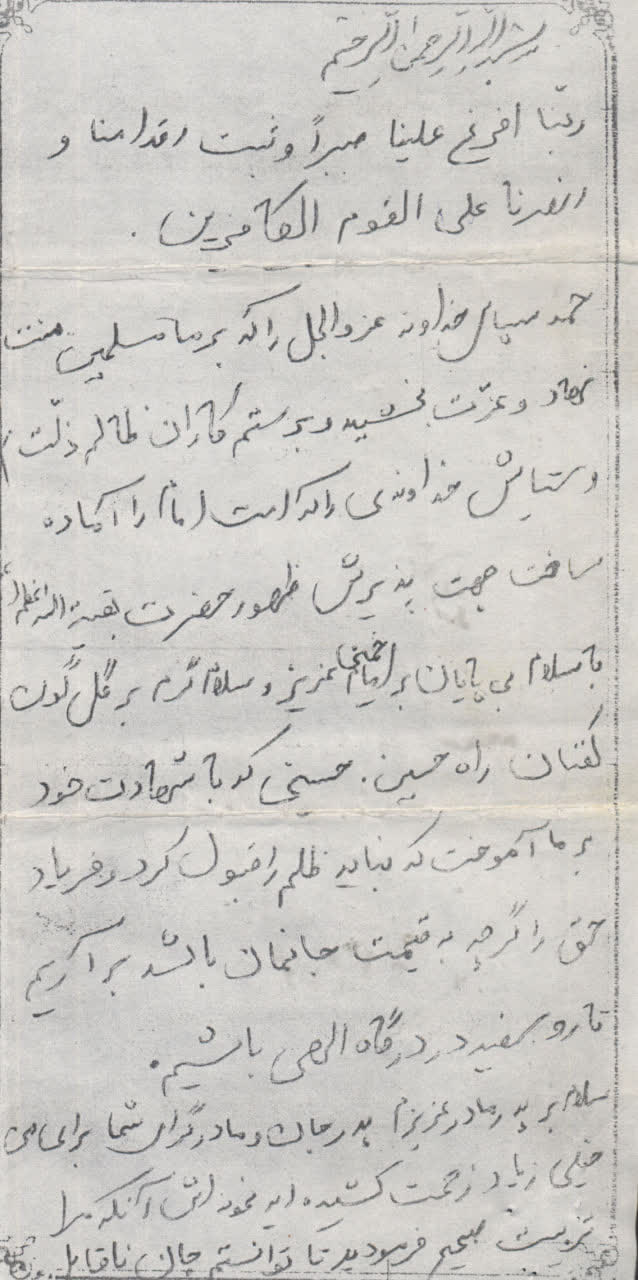 بسم الله الرحمن الرحیم
ربّنا افرغ علینا صبراً و ثبت اقدامنا و
انصرنا علی القوم الکافرین .
حمد سپاس خداوند عز و الجل را که بر ما مسلمین منت
نهاد و عزّت بخشید و بر ستم کاران ظالم ذلّت
و ستایش خداوندی را که امت امام را آماده
ساخت جهت پذیرش ظهور حضرت بقیة الله اعظم
با سلام بی پایان بر امام خمینی عزیز و سلام گرم بر گل گون
کفنان راه حسین . حسینی که با شهادت خود
بر ما آموخت که نباید ظلم را قبول کرد و فریاد
حق را گرچه به قیمت جانمان باشد برآریم
تا رو سفید در درگاه الهی باشیم .
سلام بر پدر و مادر عزیزم پدر جان و مادر گرامی شما برای من
خیلی زیاد زحمت کشیده اید آنکه مرا
تربیت صحیح فرمودید تا توانستم جان ناقابل